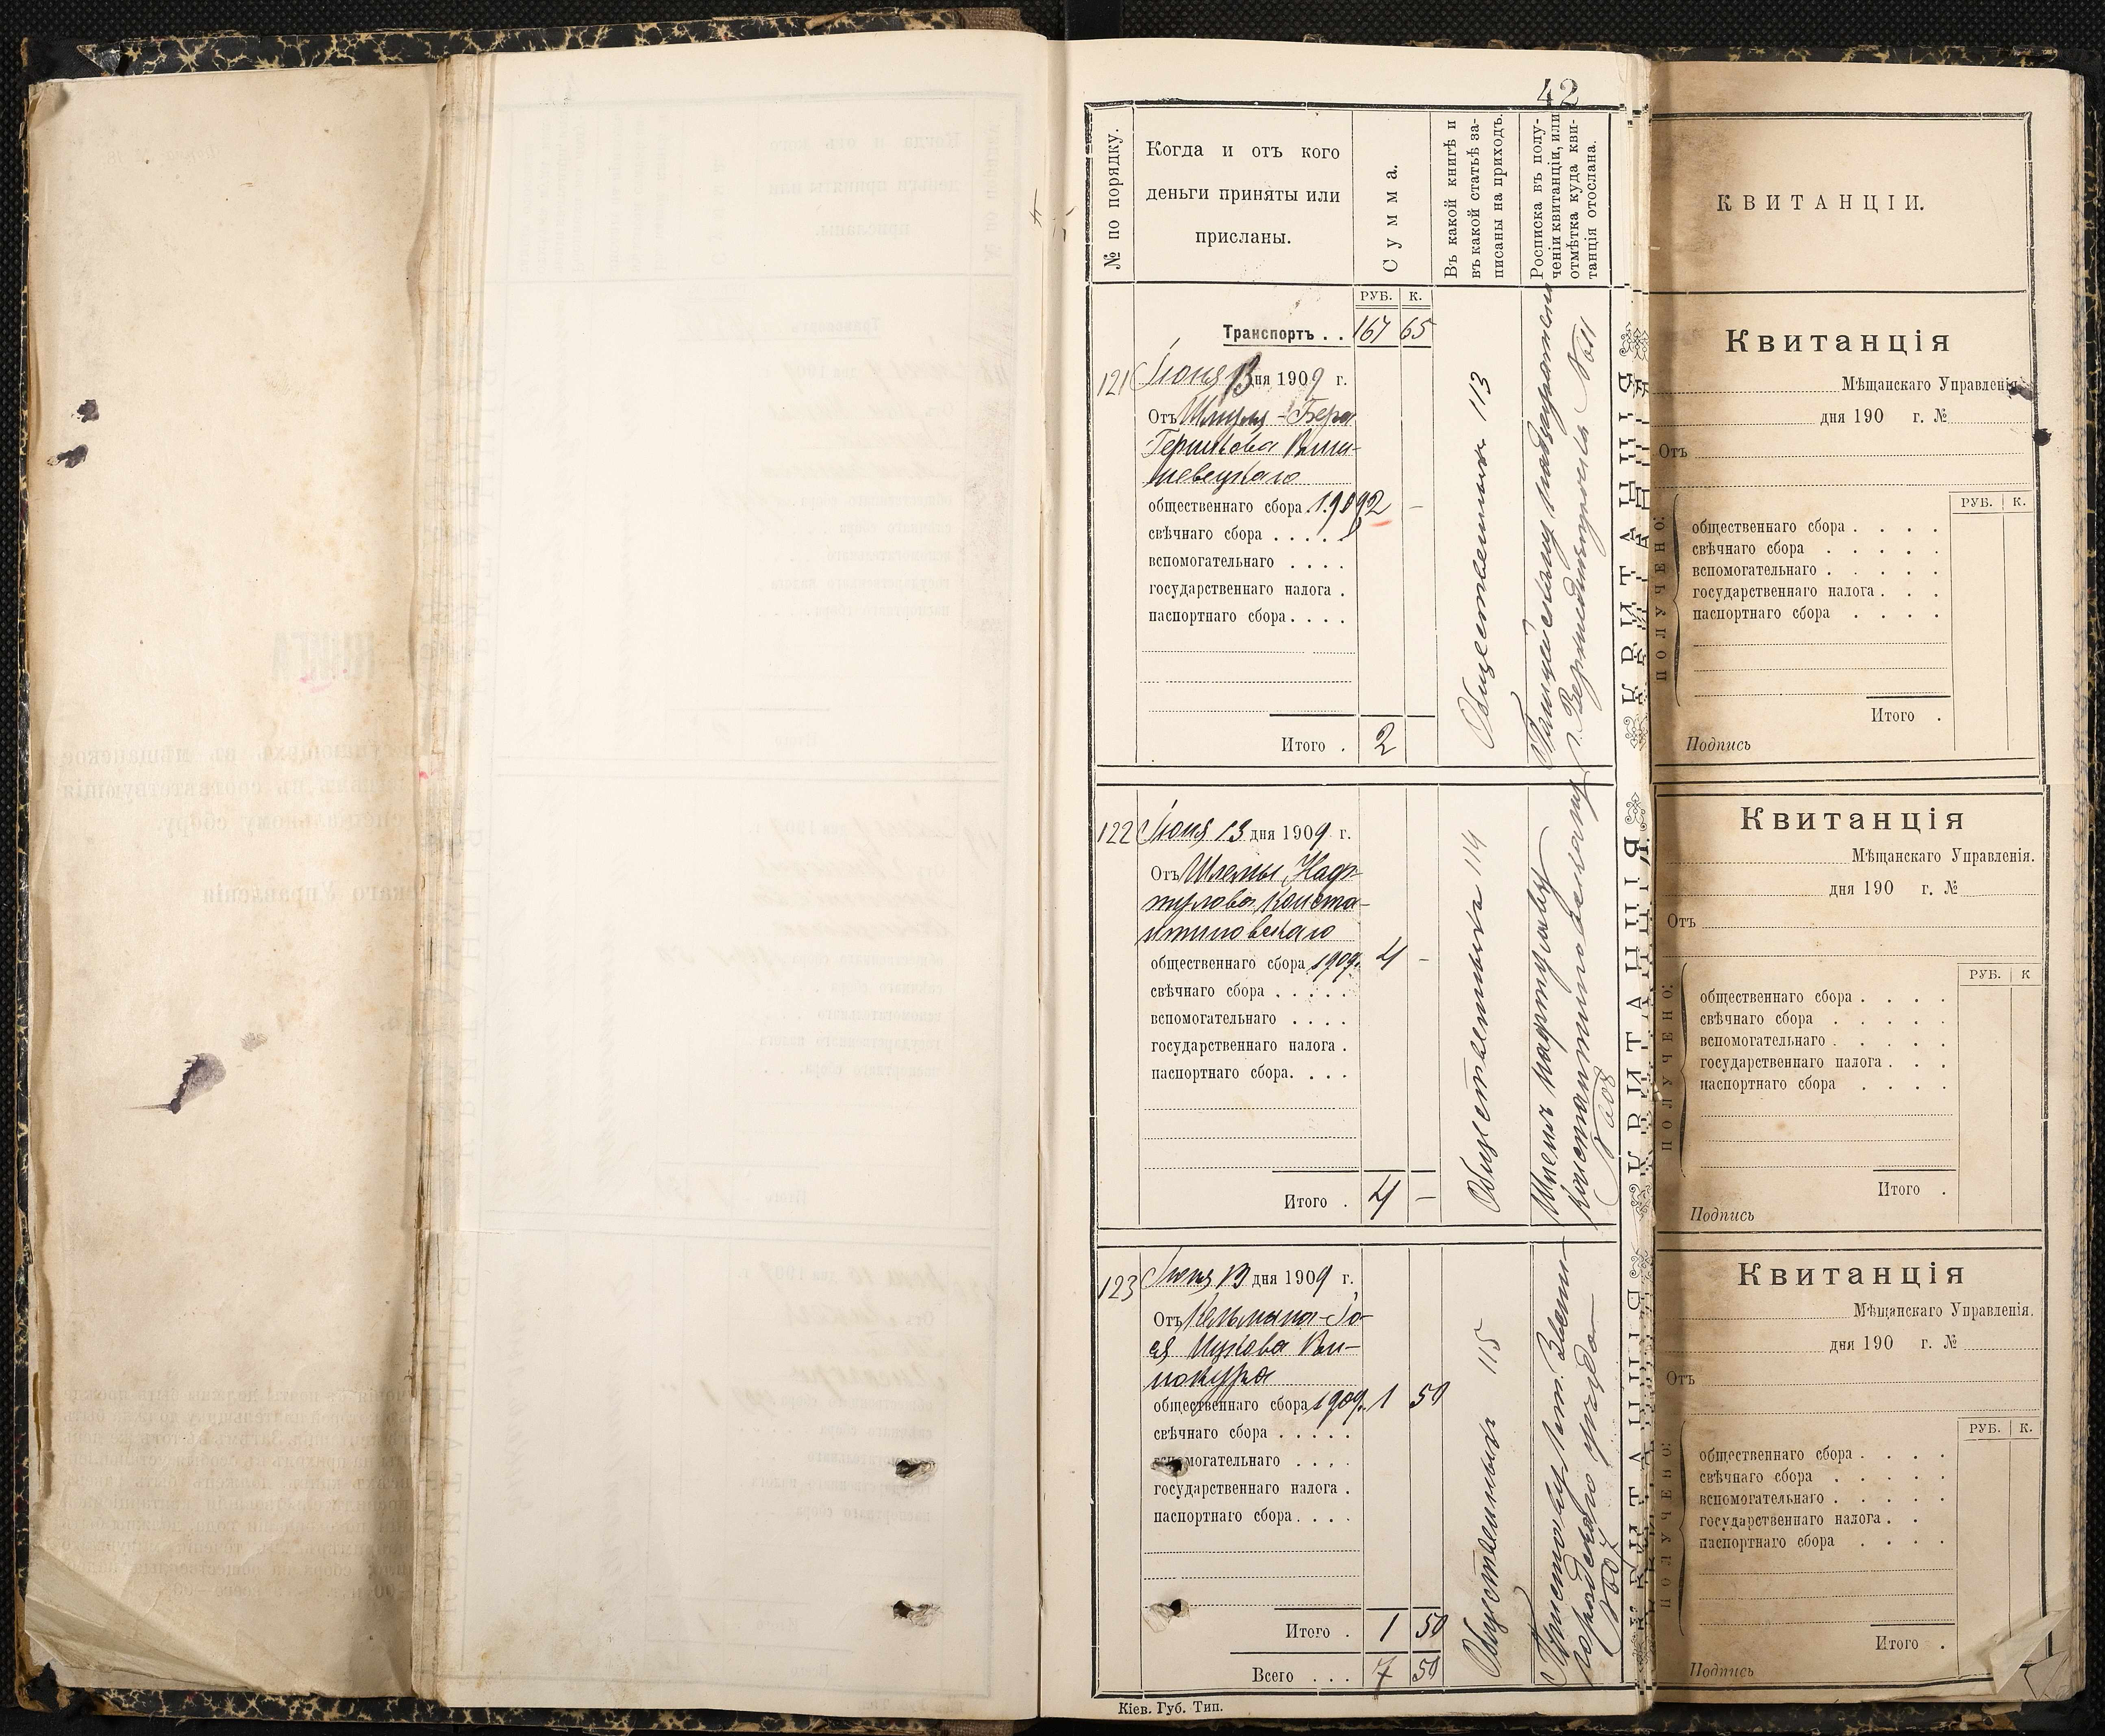 42
№ по порядку.
Когда и отъ кого
деньги приняты или
присланы.
Сумма.
Въ какой книгѣ и
въ какой статьѣ за-
писаны на приходъ.
Росписка въ полу-
ченіи квитанціи, или
отмѣтка куда кви-
танція отослана.
РУБ. К.
Транспортъ . . 167 65
121 Іюня 13 дня 1909 г.
Отъ Шмуля-Бера
Гершкова Виш-
невецкаго
общественнаго сбора 1909 2 —
свѣчнаго сбора . . . . .
вспомогательнаго . . . .
государственнаго налога .
паспортнаго сбора . . . .
Итого . 2
Общественныхъ 113
г. Верхнеднѣпровскъ №611
122 Іюня 13 дня 1909 г.
Отъ Шлемы Наф-
тулова Конста-
нтиновскаго
общественнаго сбора 1909. 4 —
свѣчнаго сбора . . . . .
вспомогательнаго . . . .
государственнаго налога .
паспортнаго сбора. . . .
Итого . 4 —
Общественныхъ 114
Шлемъ Нафтулову
Константиновскому
№608
123 Іюня 13 дня 1909 г.
Отъ Кельмана-Іо-
ся Ицкова Ви-
нокура
общественнаго сбора 1909. 1 50
свѣчнаго сбора . . . . .
вспомогательнаго . . . .
государственнаго налога .
паспортнаго сбора . . . .
Итого . 1 50
Всего . . . 7 50
Общественныхъ 115
Приставу
городскаго
№607
Кіев. Губ. Тип.
КВИТАНЦІИ.
Квитанція
Мѣщанскаго Управленія.
дня 190 г. №
Отъ
ПОЛУЧЕНО:
РУБ. К.
общественнаго сбора . . . .
свѣчнаго сбора . . . . .
вспомогательнаго . . . . .
государственнаго налога . . .
паспортнаго сбора . . . .
Итого .
Подпись
Квитанція
Мѣщанскаго Управленія.
дня 190 г. №
Отъ
ПОЛУЧЕНО:
РУБ. К
общественнаго сбора . . . .
свѣчнаго сбора . . . . .
вспомогательнаго . . . . .
государственнаго налога . . .
паспортнаго сбора . . . .
Итого .
Подпись
Квитанція
Мѣщанскаго Управленія.
дня 190 г. №
Отъ
ПОЛУЧЕНО:
РУБ. К.
общественнаго сбора . . . .
свѣчнаго сбора . . . . .
вспомогательнаго . . . . .
государственнаго налога . .
паспортнаго сбора . . . .
Итого .
Подпись